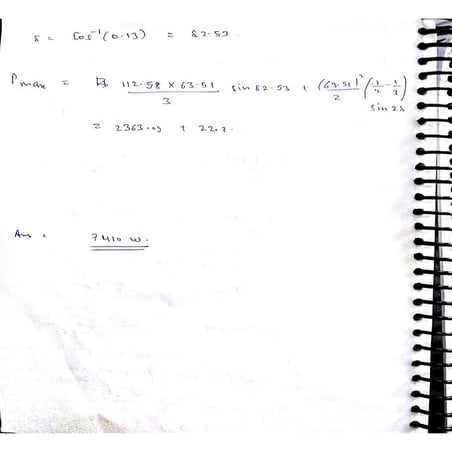 δ = Cos⁻¹(0.13) = 82.53.
Pmax = 112.58 × 63.51 / 3 sin 82.53 + (63.51)²/2 (1/2 - 1/3) sin 2δ
= 2363.09 + 22.7.
Ans = 7410 W.